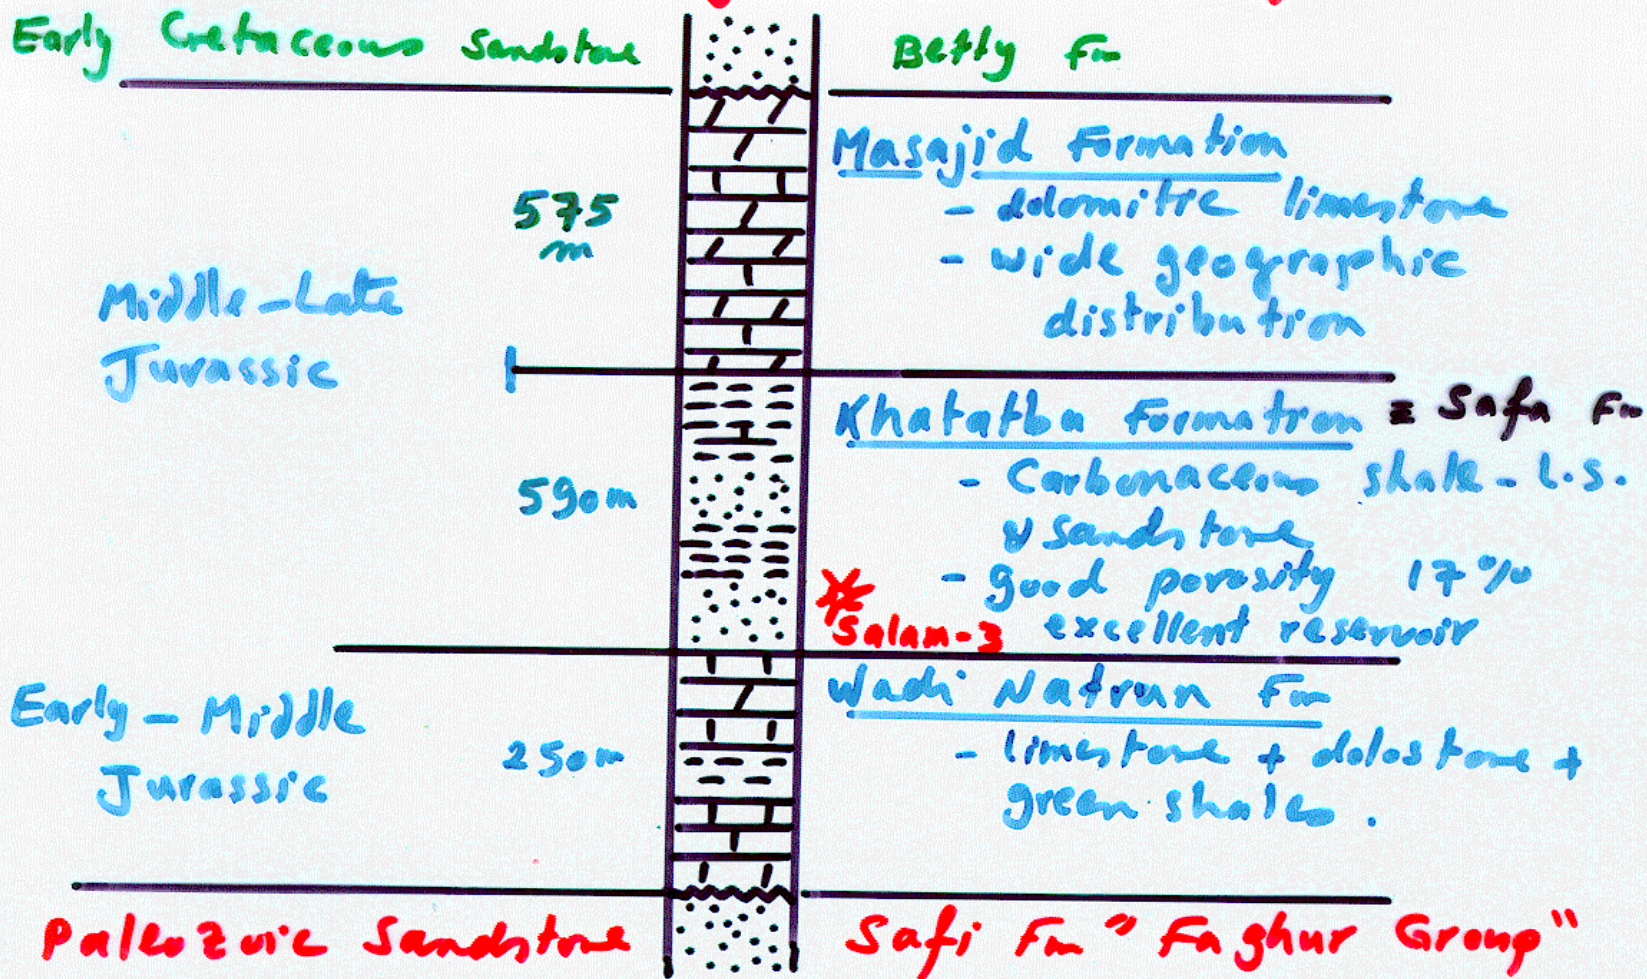 Early Cretaceous Sandstone
Betty Fm
Masajid Formation
- dolomitic limestone
- wide geographic
distribution
575
m
Middle-Late
Jurassic
Khatatba Formation = Safa Fm
- Carbonaceous shale - L.S.
& sandstone
- good porosity 17%
excellent reservoir
590m
Salam-3
Early - Middle
Jurassic
250m
Wadi Natrun Fm
- limestone + dolostone +
green shales.
Paleozoic Sandstone
Safi Fm "Faghur Group"